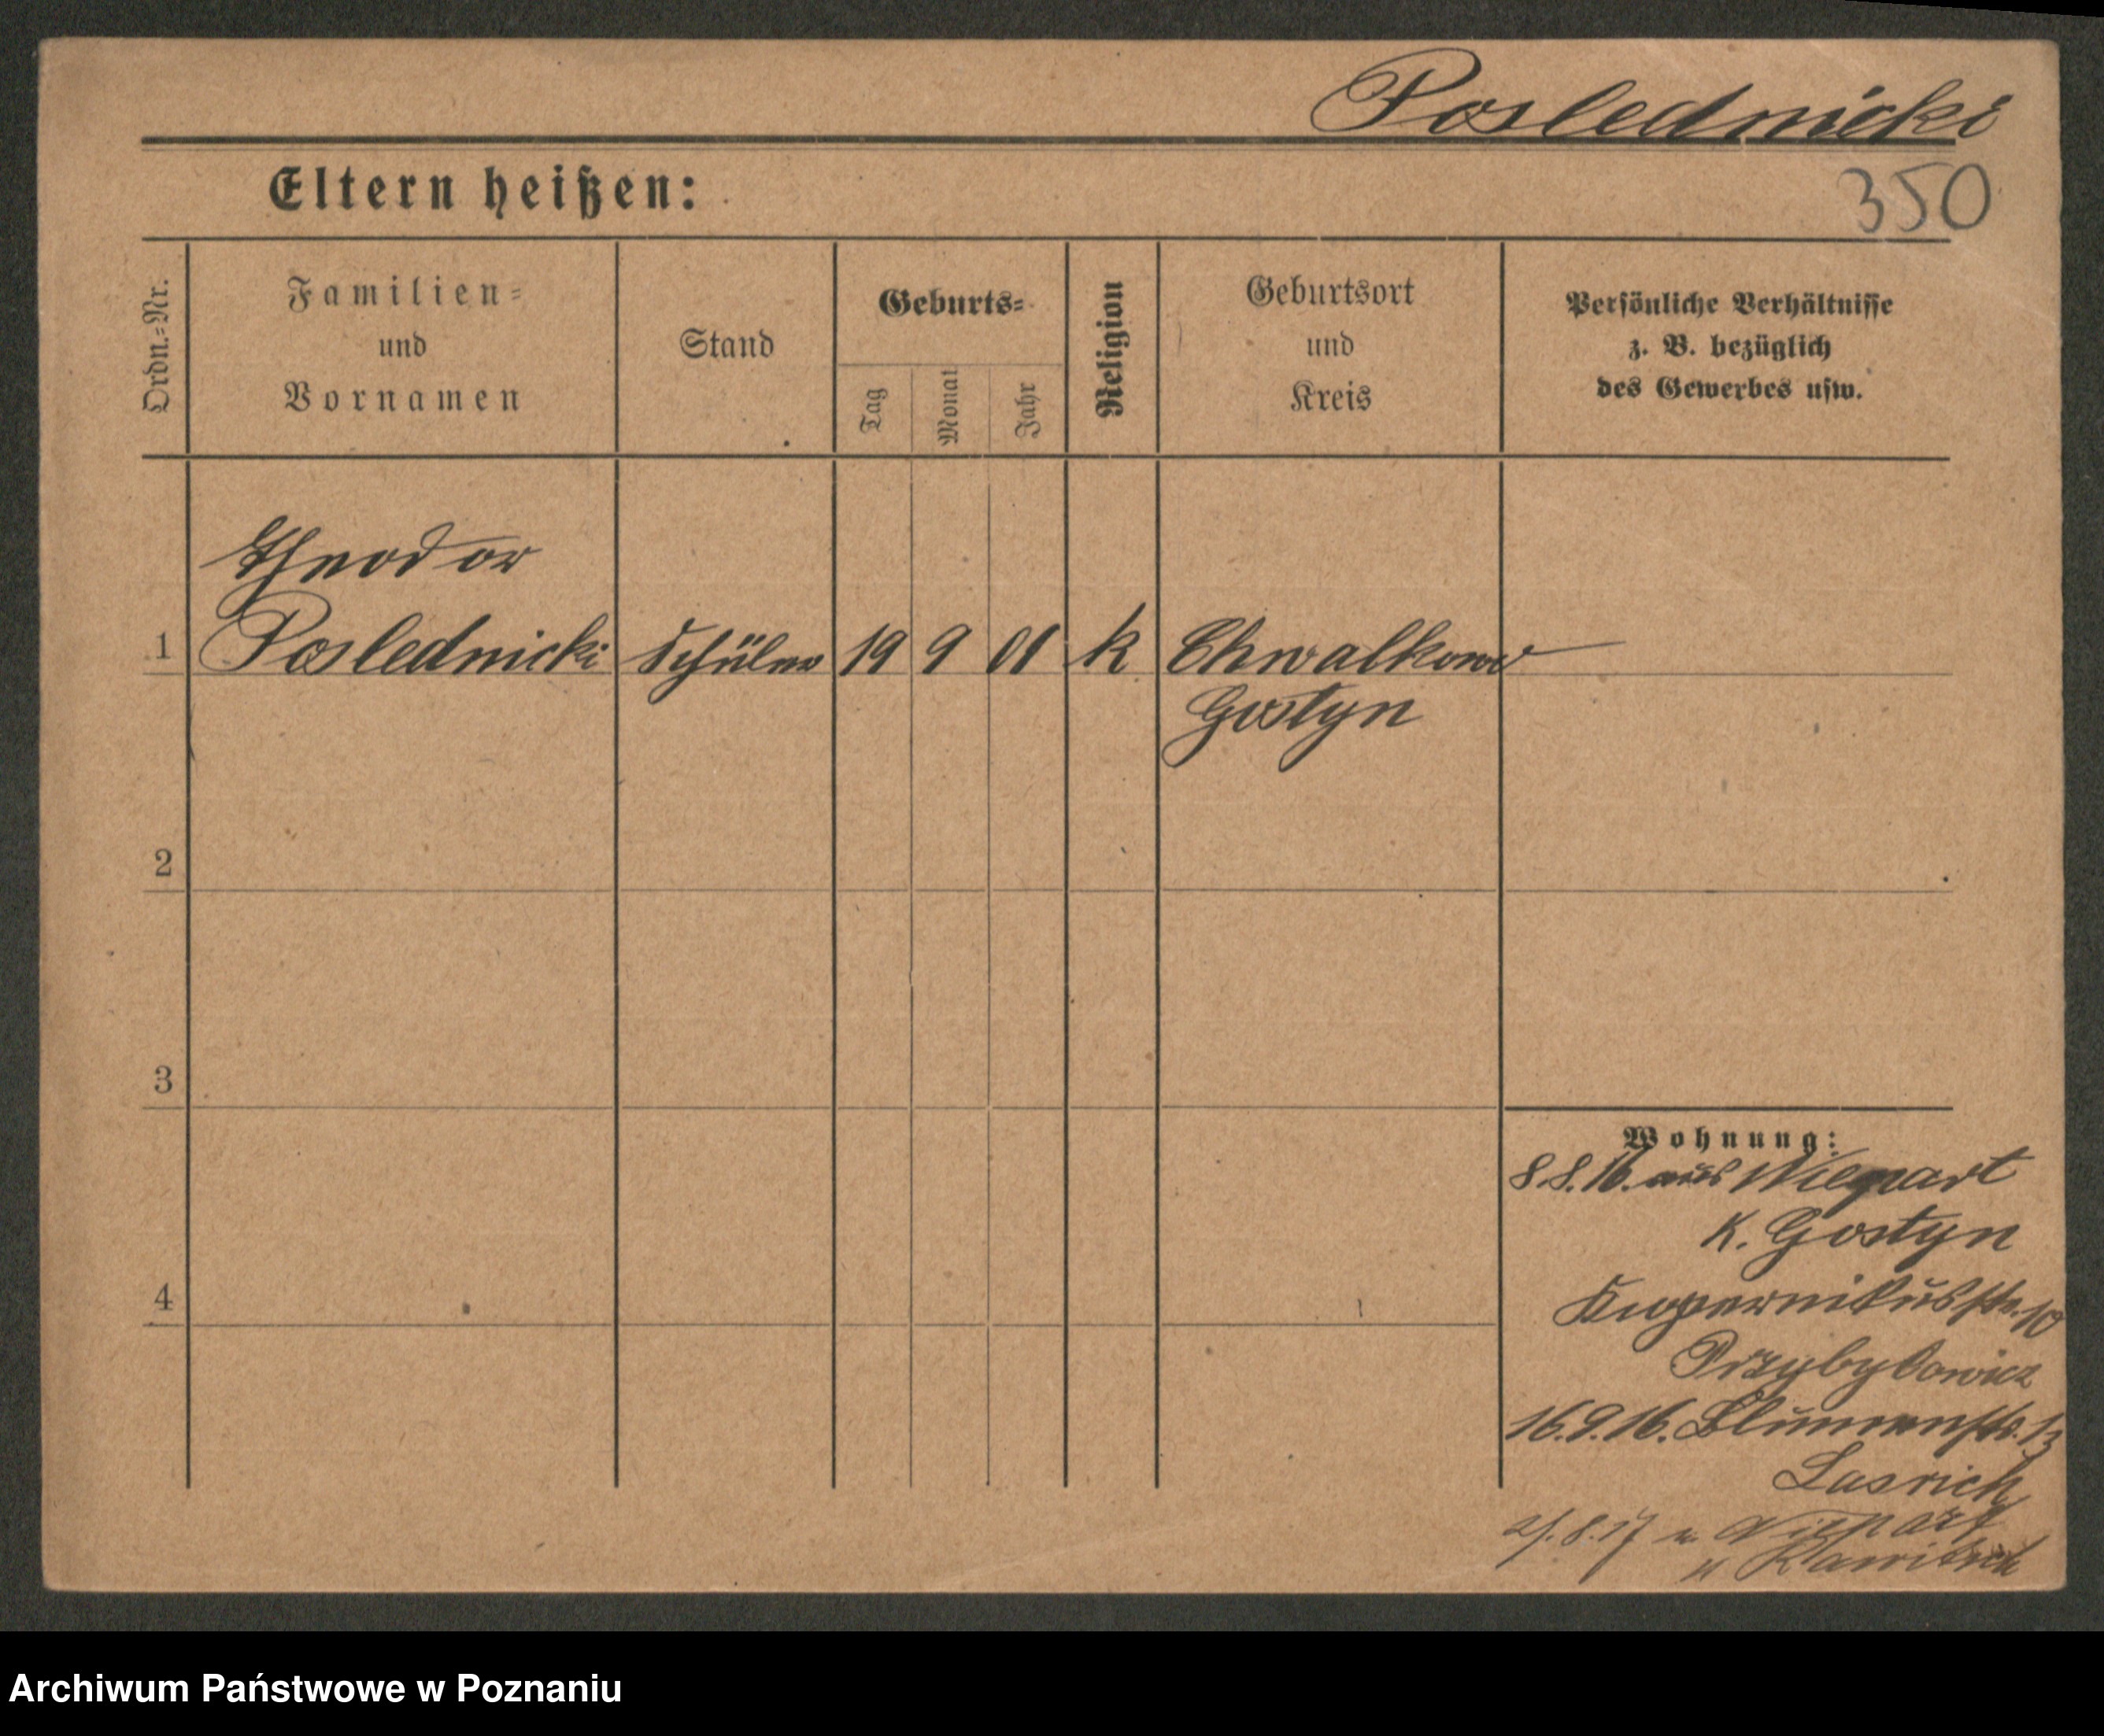 Poslednicki
Eltern heißen:
350
Ordn.=Nr.
Familien=
und
Vornamen
Stand
Geburts=
Tag
Monat
Jahr
Religion
Geburtsort
und
Kreis
Persönliche Verhältnisse
z. B. bezüglich
des Gewerbes usw.
Theodor
1 Poslednicki Schüler 19 9 01 k Chwalkowo
Gostyn
2
3
4
Wohnung:
8.8.16. aus
K. Gostyn
Kopernikusstr. 10
Przybylowicz
16.9.16. Blumenstr. 13
8.17
Rawitsch
Archiwum Państwowe w Poznaniu